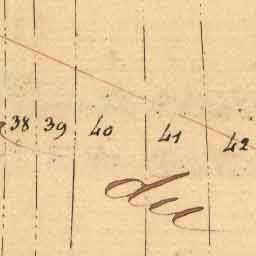 38 39 40 41 42
du